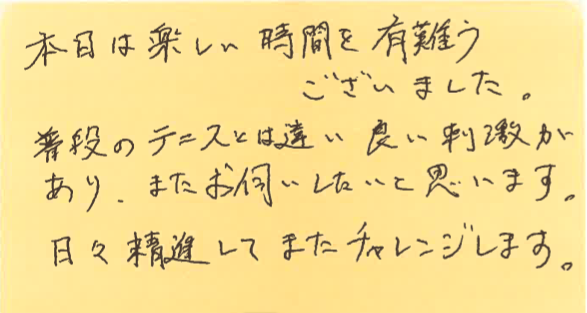 本日は楽しい時間を有難う
ございました。
普段のテニスとは違い良い刺激が
あり、またお伺いしたいと思います。
日々精進してまたチャレンジします。